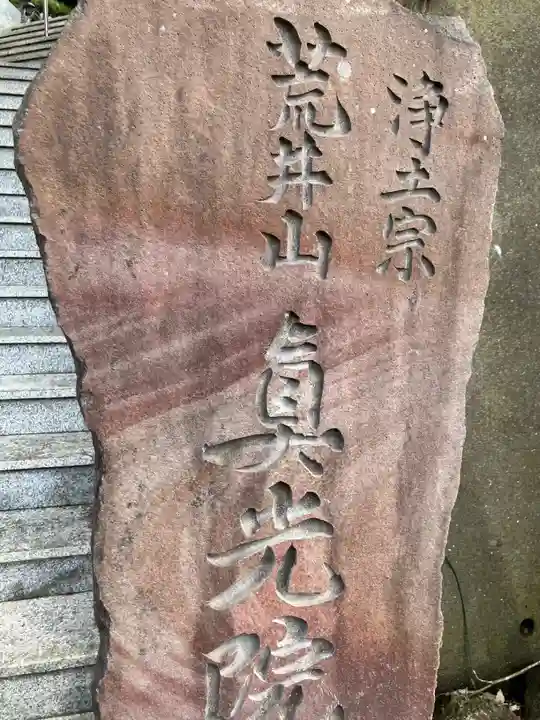 浄土宗
荒井山 眞光院